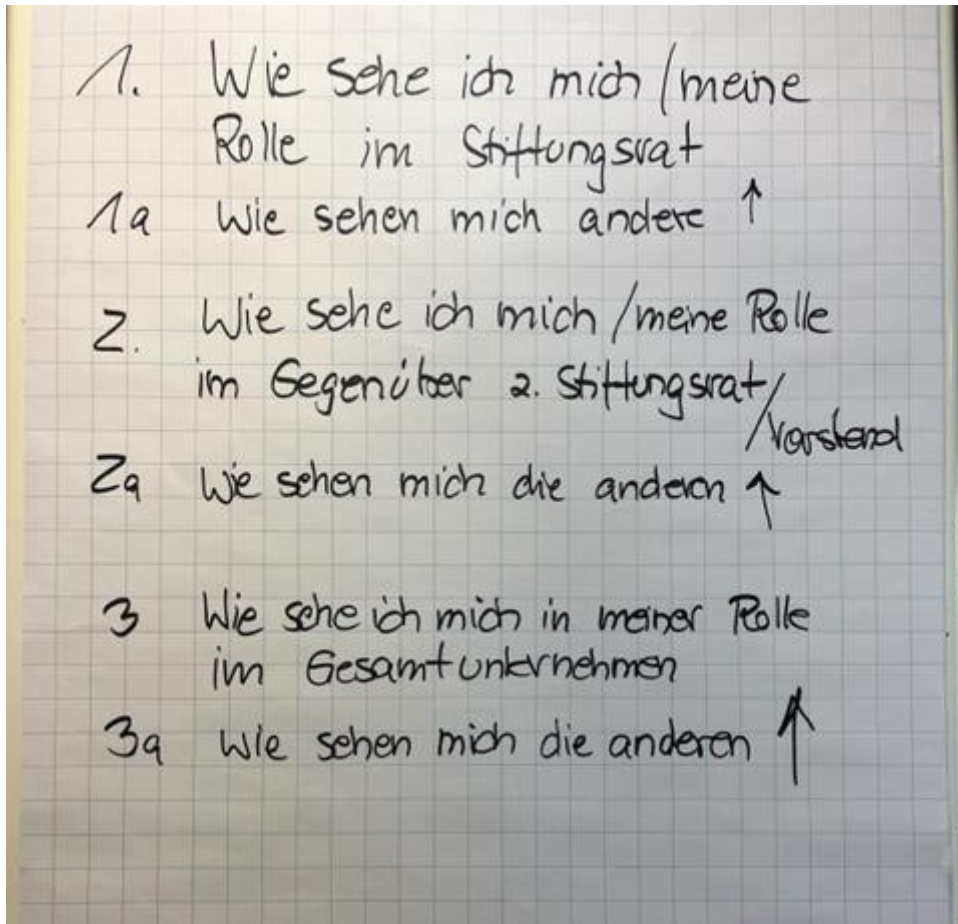 1. Wie sehe ich mich / meine
Rolle im Stiftungsrat
1a Wie sehen mich andere ↑
2. Wie sehe ich mich / meine Rolle
im Gegenüber 2. Stiftungsrat /
/ Vorstand
2a Wie sehen mich die anderen ↑
3 Wie sehe ich mich in meiner Rolle
im Gesamtunternehmen
3a Wie sehen mich die anderen ↑